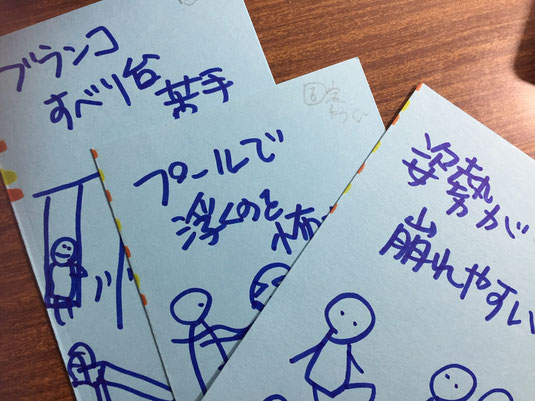 ブランコ
すべり台 苦手
プールで
浮くのと
怖
姿勢が
崩れやすい